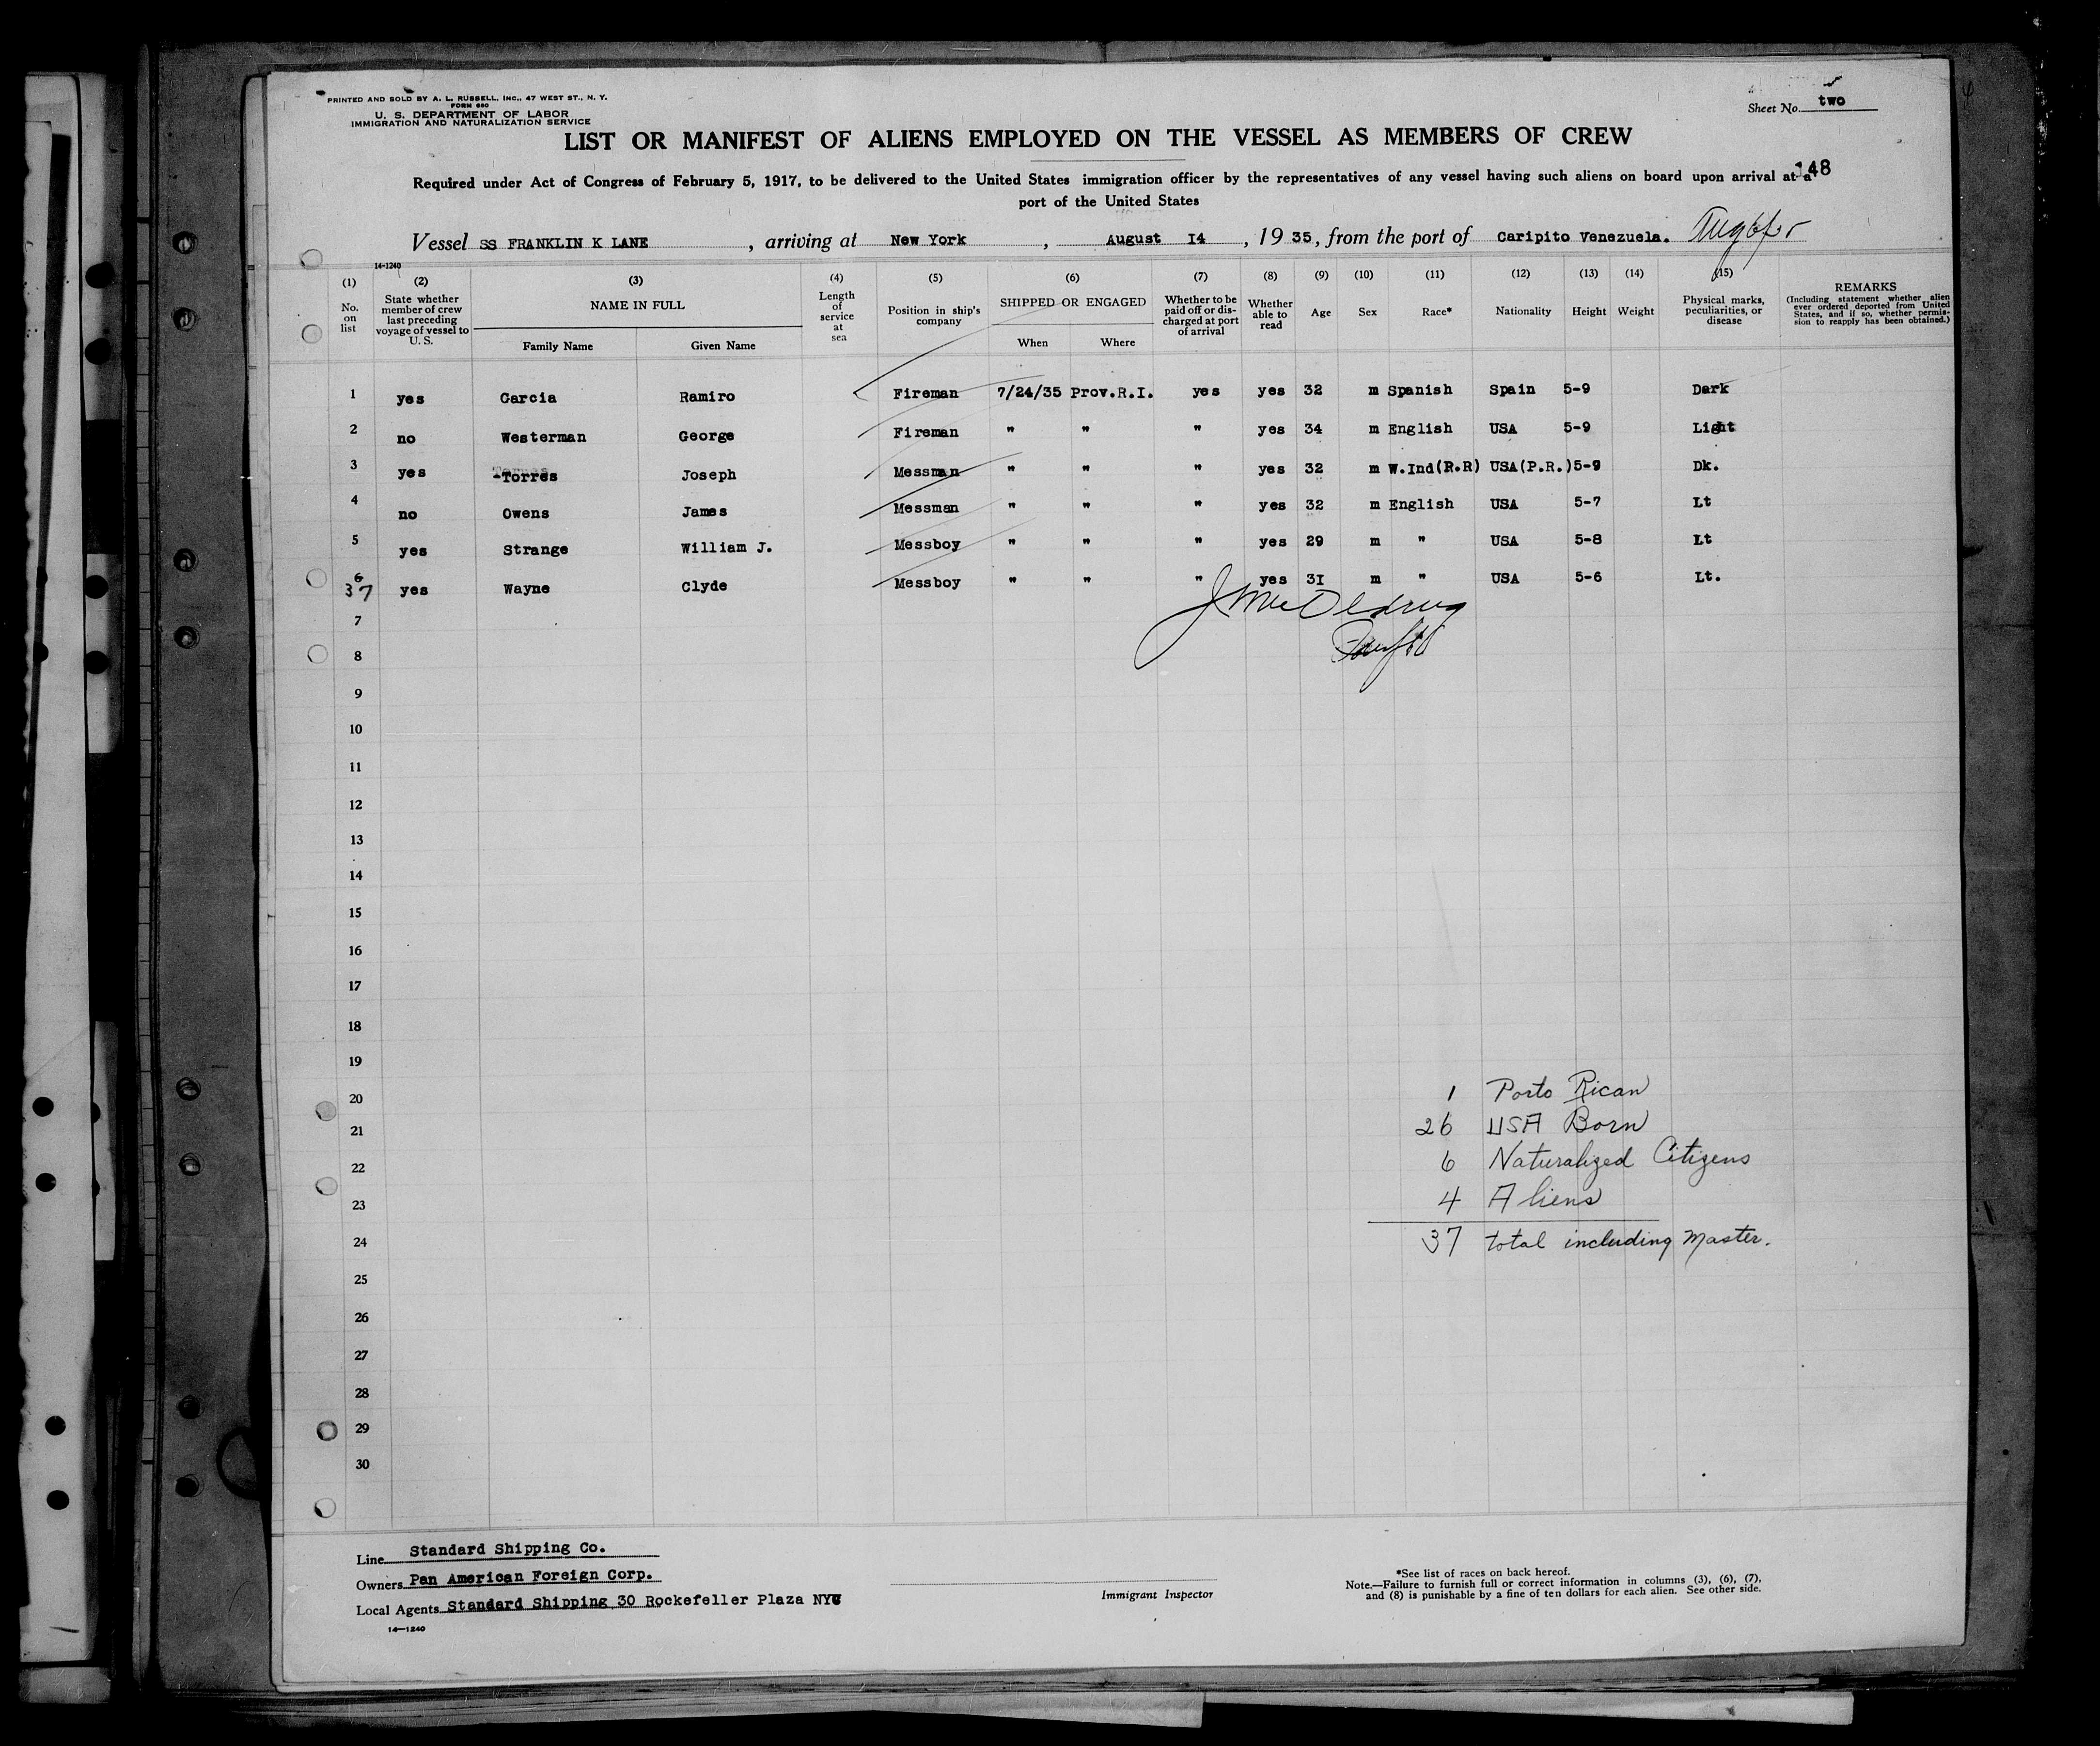 PRINTED AND SOLD BY A. L. RUSSELL, INC., 47 WEST ST., N. Y.
FORM 660
U. S. DEPARTMENT OF LABOR
IMMIGRATION AND NATURALIZATION SERVICE
Sheet No. two
LIST OR MANIFEST OF ALIENS EMPLOYED ON THE VESSEL AS MEMBERS OF CREW
148
Required under Act of Congress of February 5, 1917, to be delivered to the United States immigration officer by the representatives of any vessel having such aliens on board upon arrival at a
port of the United States
Vessel SS FRANKLIN K LANE, arriving at New York, August I4, 19 35, from the port of Caripito Venezuela.
14-1240
(1) (2) (3) (4) (5) (6) (7) (8) (9) (10) (11) (12) (13) (14) (15)
No. on list
State whether member of crew last preceding voyage of vessel to U. S.
NAME IN FULL
Family Name Given Name
Length of service at sea
Position in ship's company
SHIPPED OR ENGAGED
When Where
Whether to be paid off or discharged at port of arrival
Whether able to read
Age
Sex
Race*
Nationality
Height
Weight
Physical marks, peculiarities, or disease
REMARKS
(Including statement whether alien ever ordered deported from United States, and if so, whether permission to reapply has been obtained.)
1 yes Garcia Ramiro Fireman 7/24/35 Prov.R.I. yes yes 32 m Spanish Spain 5-9 Dark
2 no Westerman George Fireman " " " yes 34 m English USA 5-9 Light
3 yes Torres Joseph Messman " " " yes 32 m W.Ind(P.R) USA(P.R.) 5-9 Dk.
4 no Owens James Messman " " " yes 32 m English USA 5-7 Lt
5 yes Strange William J. Messboy " " " yes 29 m " USA 5-8 Lt
6 37 yes Wayne Clyde Messboy " " " yes 3I m " USA 5-6 Lt.
7
8
9
10
11
12
13
14
15
16
17
18
19
20 1 Porto Rican
21 26 USA Born
22 6 Naturalized Citizens
23 4 Aliens
24 37 total including Master.
25
26
27
28
29
30
Line Standard Shipping Co.
Owners Pan American Foreign Corp.
Local Agents Standard Shipping 30 Rockefeller Plaza NYC
14—1240
Immigrant Inspector
*See list of races on back hereof.
Note.—Failure to furnish full or correct information in columns (3), (6), (7),
and (8) is punishable by a fine of ten dollars for each alien. See other side.